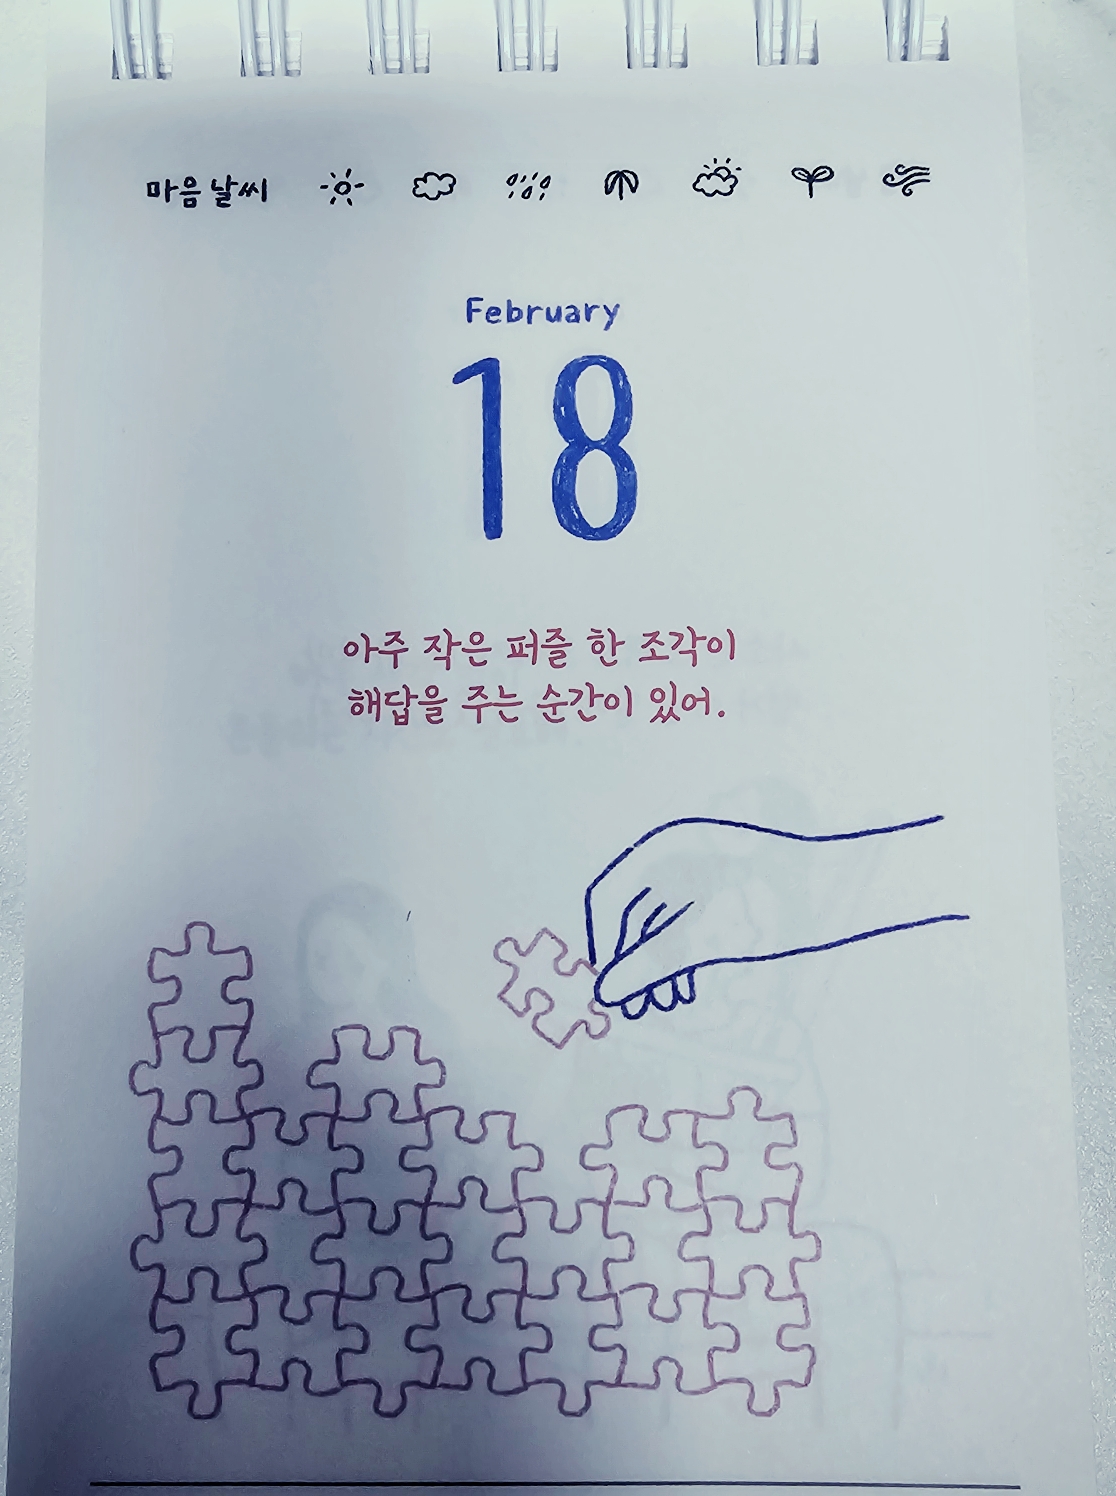 마음 날씨
February
18
아주 작은 퍼즐 한 조각이
해답을 주는 순간이 있어.